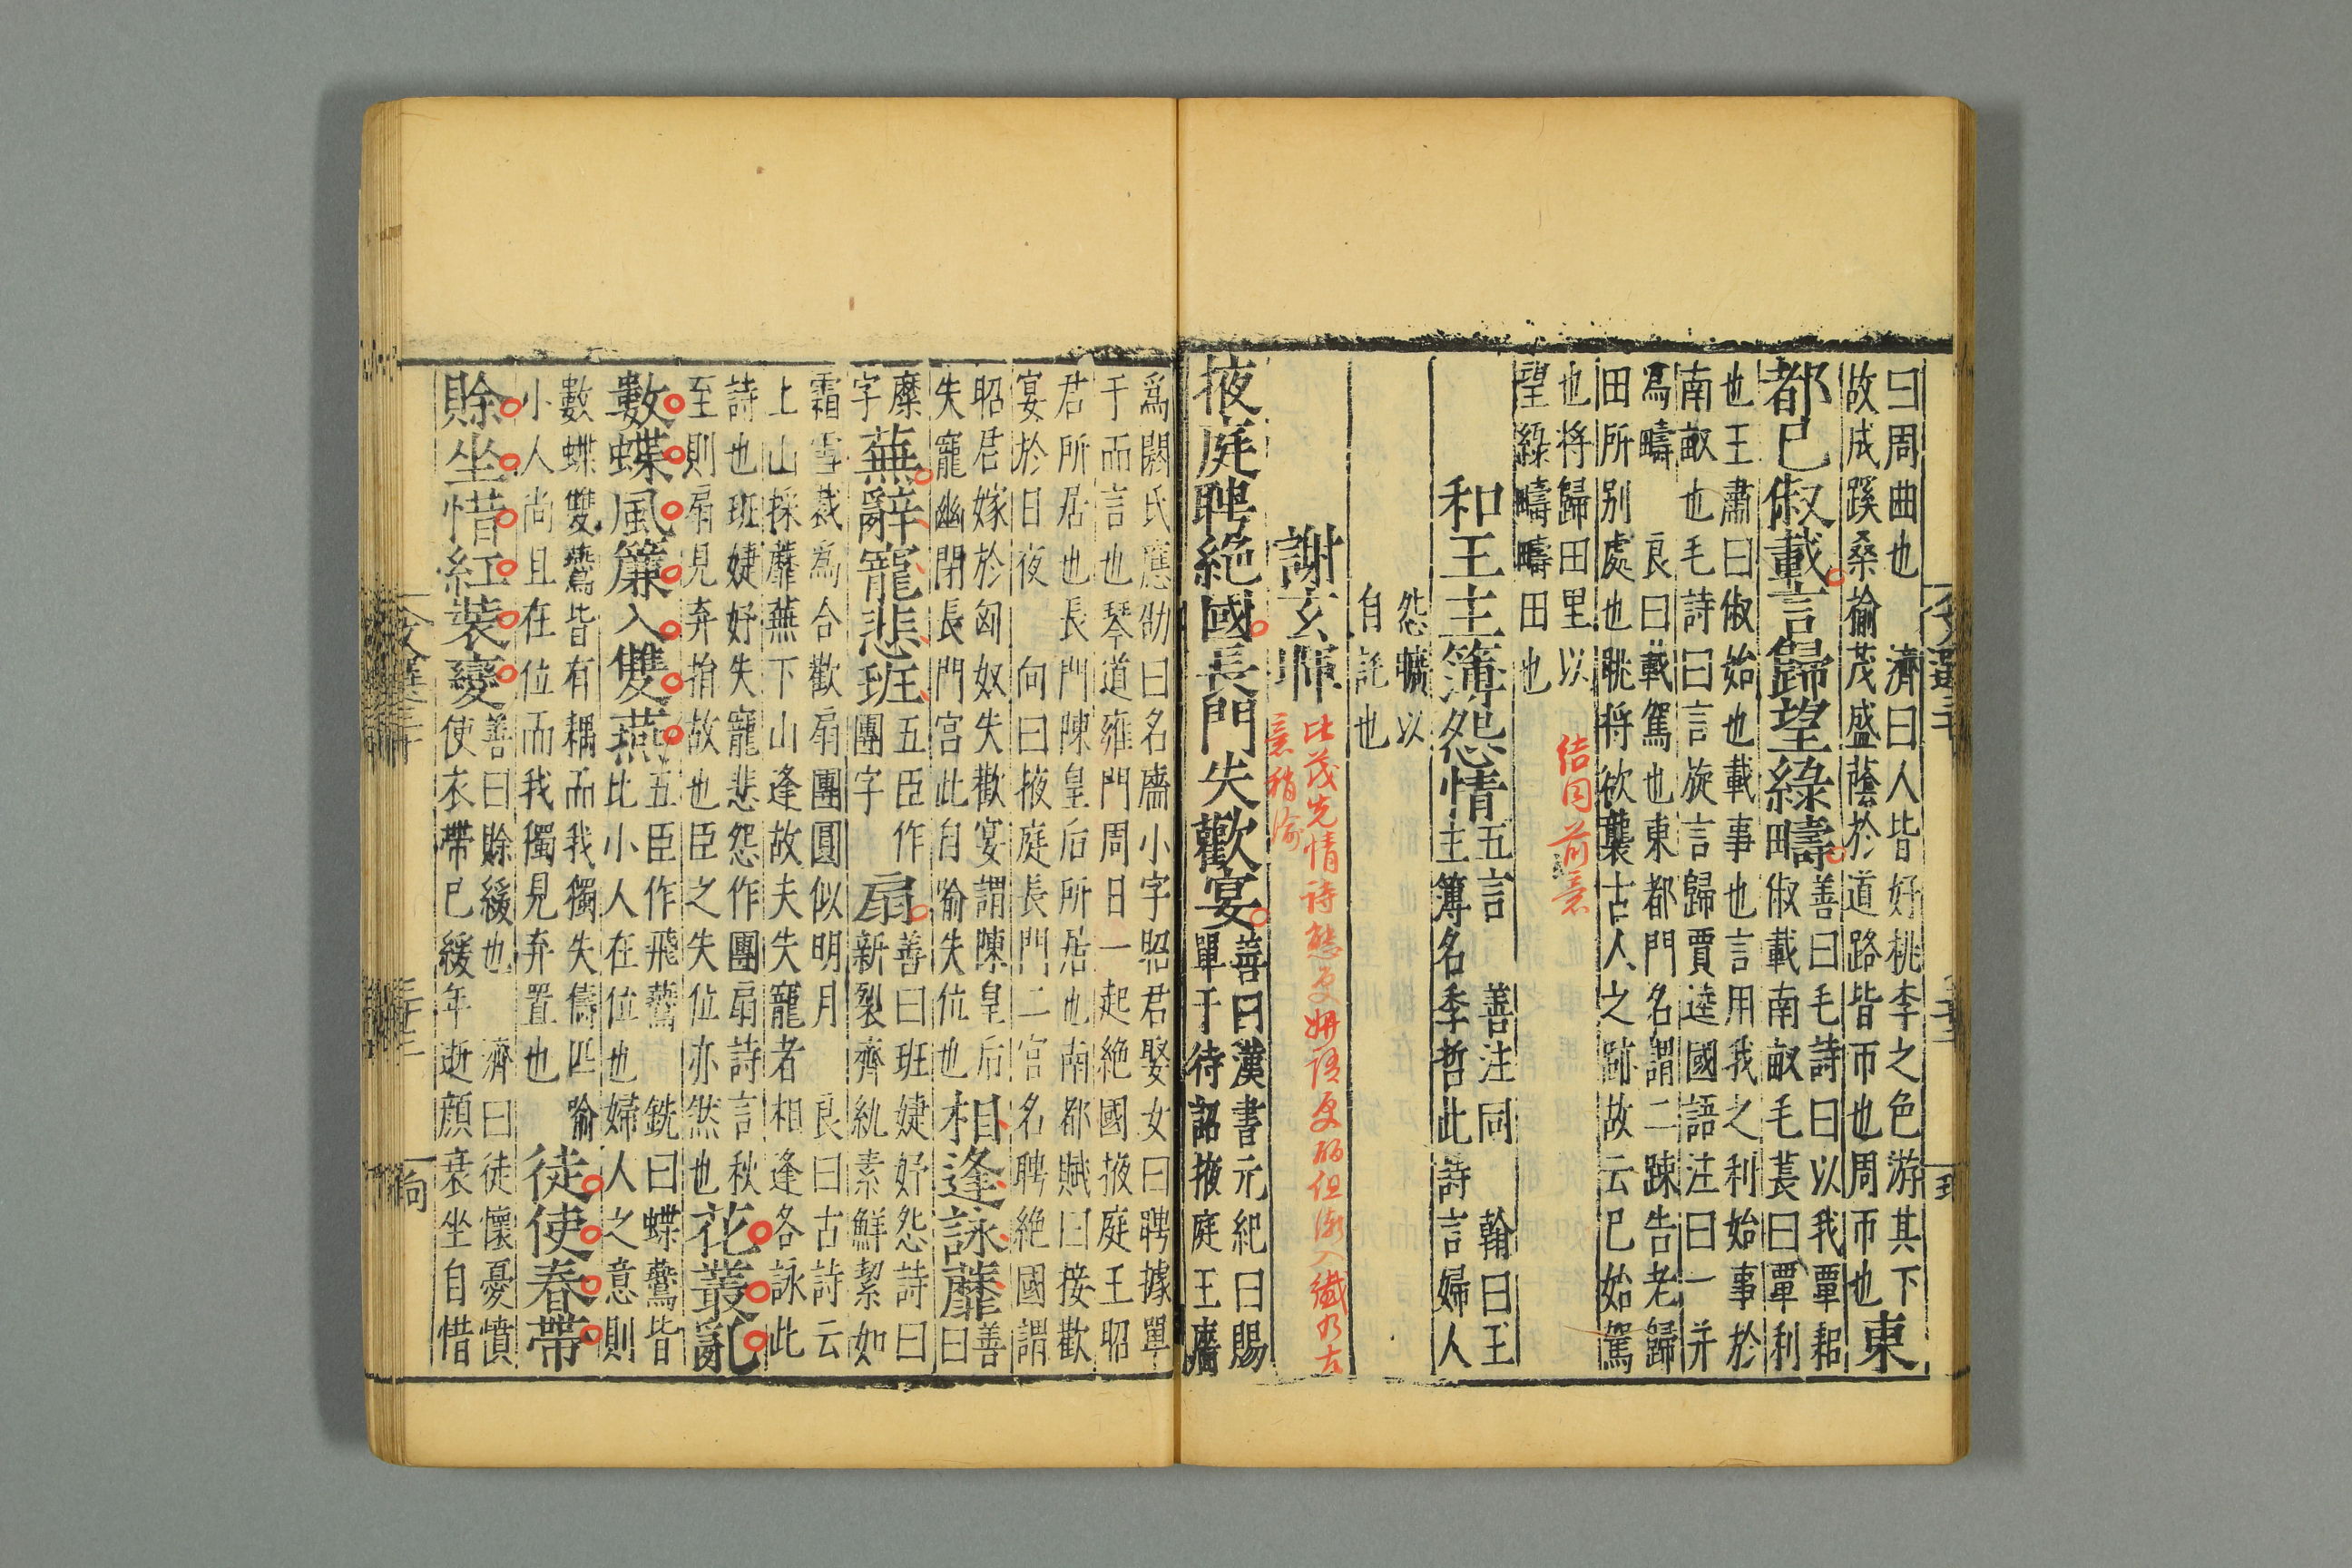 曰周曲也　濟曰人皆好桃李之色游其下
故成蹊桑榆茂盛蔭於道路皆帀也周帀也
東
都已俶載言歸望綠疇
善曰毛詩曰以我覃耜
俶載南畝毛萇曰覃利
也王肅曰俶始也載事也言用我之利始事於
南畝也毛詩曰言旋言歸賈逵國語注曰一井
爲疇　良曰載駕也東都門名謂二疎告老歸
田所别處也眺將欲襲古人之跡故云已始駕
也将歸田里以
望綠疇疇田也
結同前意
和王主簿怨情
五言　善注同　翰曰王
主簿名季哲此詩言婦人
怨曠以
自託也
謝玄暉
比茂先情詩態更妍語更
但漸入纖乃古
意稍渝
掖庭聘絕國長門失歡宴
善曰漢書元紀曰賜
單于待詔掖庭王廧
爲閼氏應劭曰名廧小字昭君娶女曰聘據單
于而言也琴道雍門周曰一起絕國掖庭王昭
君所居也長門陳皇后所居也南都賦曰接歡
宴於日夜　向曰掖庭長門二宮名聘絕國謂
昭君嫁於匈奴失歡宴謂陳皇后
失寵幽閉長門宮此自喻失位也
相逢詠蘼
善
曰
蘪
字
蕪辭寵悲班
五臣作
團字
扇
善曰班婕妤怨詩曰
新裂齊紈素鮮絜如
霜雪裁爲合歡扇團圓似明月　良曰古詩云
上山採蘼蕪下山逢故夫失寵者相逢各詠此
詩也班婕妤失寵悲怨作團扇詩言秋
至則扇見弃捐故也臣之失位亦然也
花叢亂
數蝶風簾入雙燕
五臣作飛鷰　銑曰蝶鷰皆
比小人在位也婦人之意則
數蝶雙鷰皆有耦而我獨失儔匹喻
小人尚且在位而我獨見弃置也
徒使春帶
賖坐惜紅裝變
善曰賖緩也　濟曰徒懷憂憤
使衣帶已緩年逝顔衰坐自惜